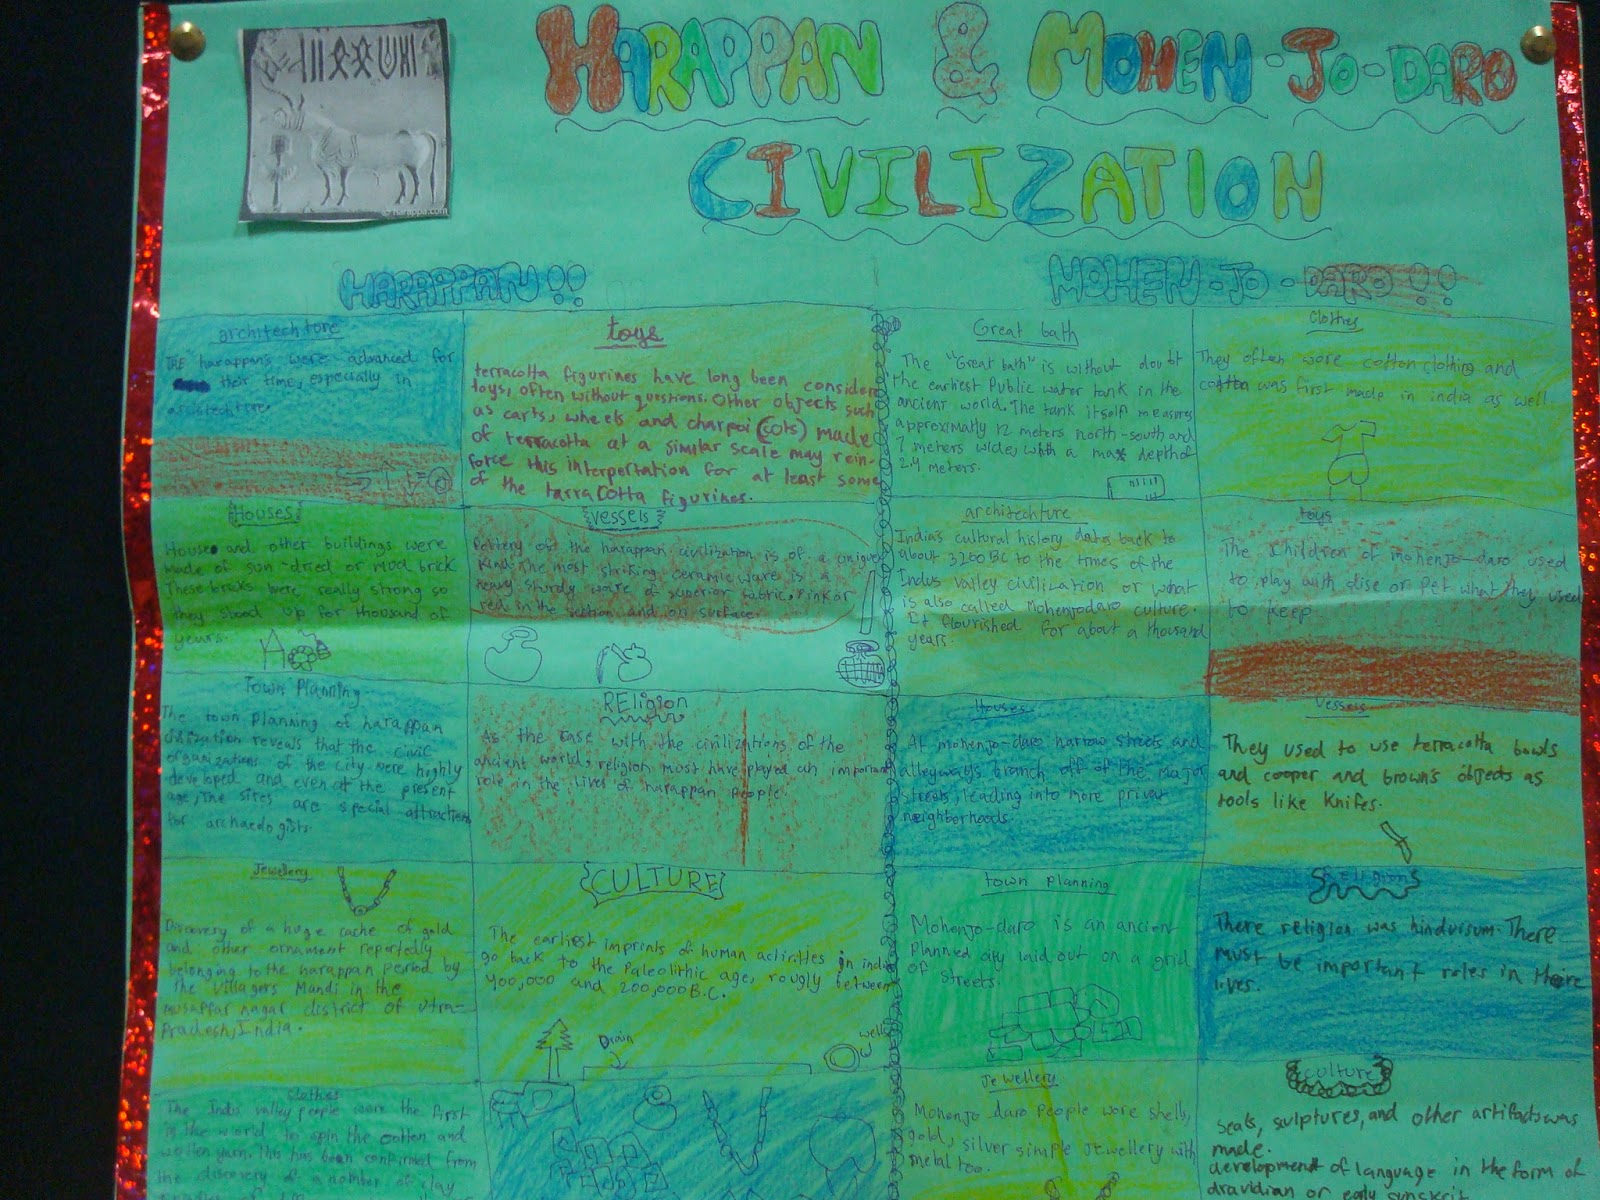 © harappa.com
HARAPPAN & MOHEN-JO-DARO
CIVILIZATION
HARAPPAN!!
architechtore
The harappan's were advanced for
their time, especially in
architechtore.
toys
terracotta figurines have long been consider
toys, often without questions. Other objects such
as carts, wheels and charpoi (cots) made
of terracotta at a similar scale may rein-
force this interpertation for at least some
of the tarracotta figurines.
Houses
House and other buildings were
made of sun-dried or mud brick
These bricks were really strong so
they stood up for thousand of
years.
vessels
Pottery of the harappan civilization is of a unique
kind. The most striking ceramic ware is a
heavy, sturdy ware of superior fabric. Pink or
red in the section and on surface.
Town Planning.
The town planning of harappan
civilization reveals that the civic
organizations of the city were highly
developed and even at the present
age, the sites are special attraction
for archaeologists.
REligion
As the case with the civilizations of the
ancient world, religion must have played an important
role in the lives of harappan people.
Jewellery
Discovery of a huge cache of gold
and other ornament reportedly
belonging to the harappan period by
the villagers Mandi in the
nagar district of Utra-
Pradesh, India.
CULTURE
The earliest imprints of human activities in india
go back to the Paleolithic age, rougly between
400,000 and 200,000 B.C.
Drain
wells
Clothes
The Indus valley people were the first
in the world to spin the cotton and
This has been confirmed from
the discovery of a number of clay
MOHEN-JO-DARO!!
Great bath
The "Great bath" is without doubt
the earliest Public water tank in the
ancient world. The tank itself measures
approximatly 12 meters north-south and
7 meters wide, with a max depth of
2.4 meters.
Clothes
They often wore cotton clothing and
cotton was first made in india as well.
architechture
India's cultural history dates back to
about 3200 BC to the times of the
Indus valley civilization or what
is also called Mohenjodaro culture.
It flourished for about a thousand
years.
toys
The children of mohenjo-daro used
to play with dise or pet what they used
to keep
Houses
At mohenjo-daro narrow streets and
alleyways branch off of the major
streets, leading into more private
neighborhoods.
Vessels
They used to use terracotta bowls
and cooper and brown's objects as
tools like Knifes.
town planning
Mohenjo-daro is an ancient
planned city laid out on a grid
of streets.
Religion
There religion was hinduisum. There
must be important roles in there
lives.
Jewellery
Mohenjo daro People wore shells,
gold, silver simple jewellery with
metal too.
culture
Seals, sculptures, and other artifacts was
made.
development of language in the form of
dravidian or early sunskrit